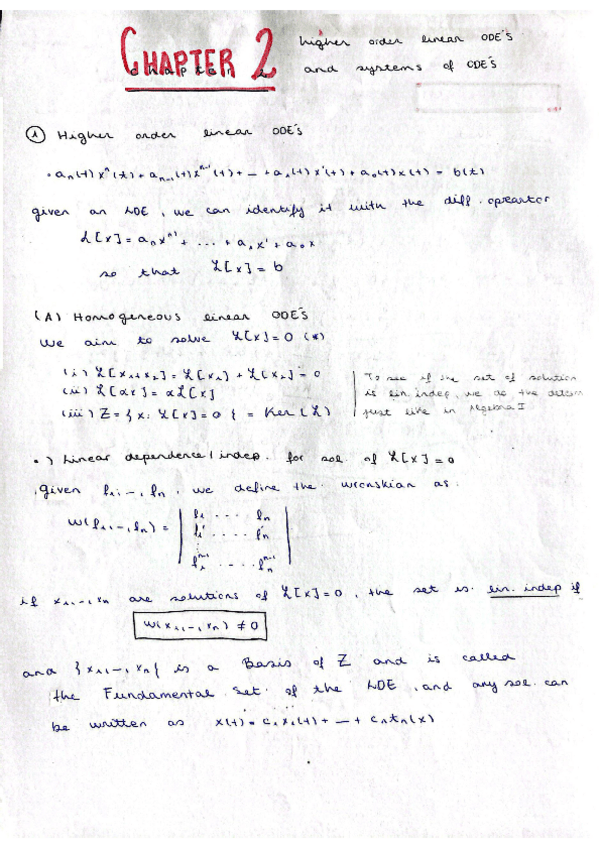 CHAPTER 2
chapter 2
higher order linear ODE'S
and systems of ODE'S
① Higher order linear ODE'S
• aₙ(t) xⁿ(t) + aₙ₋₁(t) xⁿ⁻¹(t) + — + a₁(t) x'(t) + a₀(t) x(t) = b(t)
given an LDE, we can identify it with the diff. opreator
ℒ[x] = aₙ xⁿ⁾ + ... + a₁ x' + a₀ x
so that ℒ[x] = b
(A) Homogeneous linear ODE'S
We aim to solve ℒ[x] = 0 (*)
(i) ℒ[x₁+x₂] = ℒ[x₁] + ℒ[x₂] = 0
(ii) ℒ[αx] = αℒ[x]
(iii) Z = {x: ℒ[x] = 0} = Ker(ℒ)
To see if the set of solution
is lin. indep, we do the
just like in Algebra I
•) Linear dependence / indep. for sol. of ℒ[x] = 0
given f₁,–,fₙ, we define the wronskian as.
W(f₁,–,fₙ) = | f₁ .... fₙ |
| f₁' .... fₙ' |
| f₁ⁿ⁻¹ .... fₙⁿ⁻¹ |
if x₁,–,xₙ are solutions of ℒ[x] = 0, the set is lin. indep if
W(x₁,–,xₙ) ≠ 0
and {x₁,–,xₙ} is a Basis of Z and is called
the Fundamental Set of the LDE, and any sol. can
be written as x(t) = c₁x₁(t) + — + cₙtₙ(x)